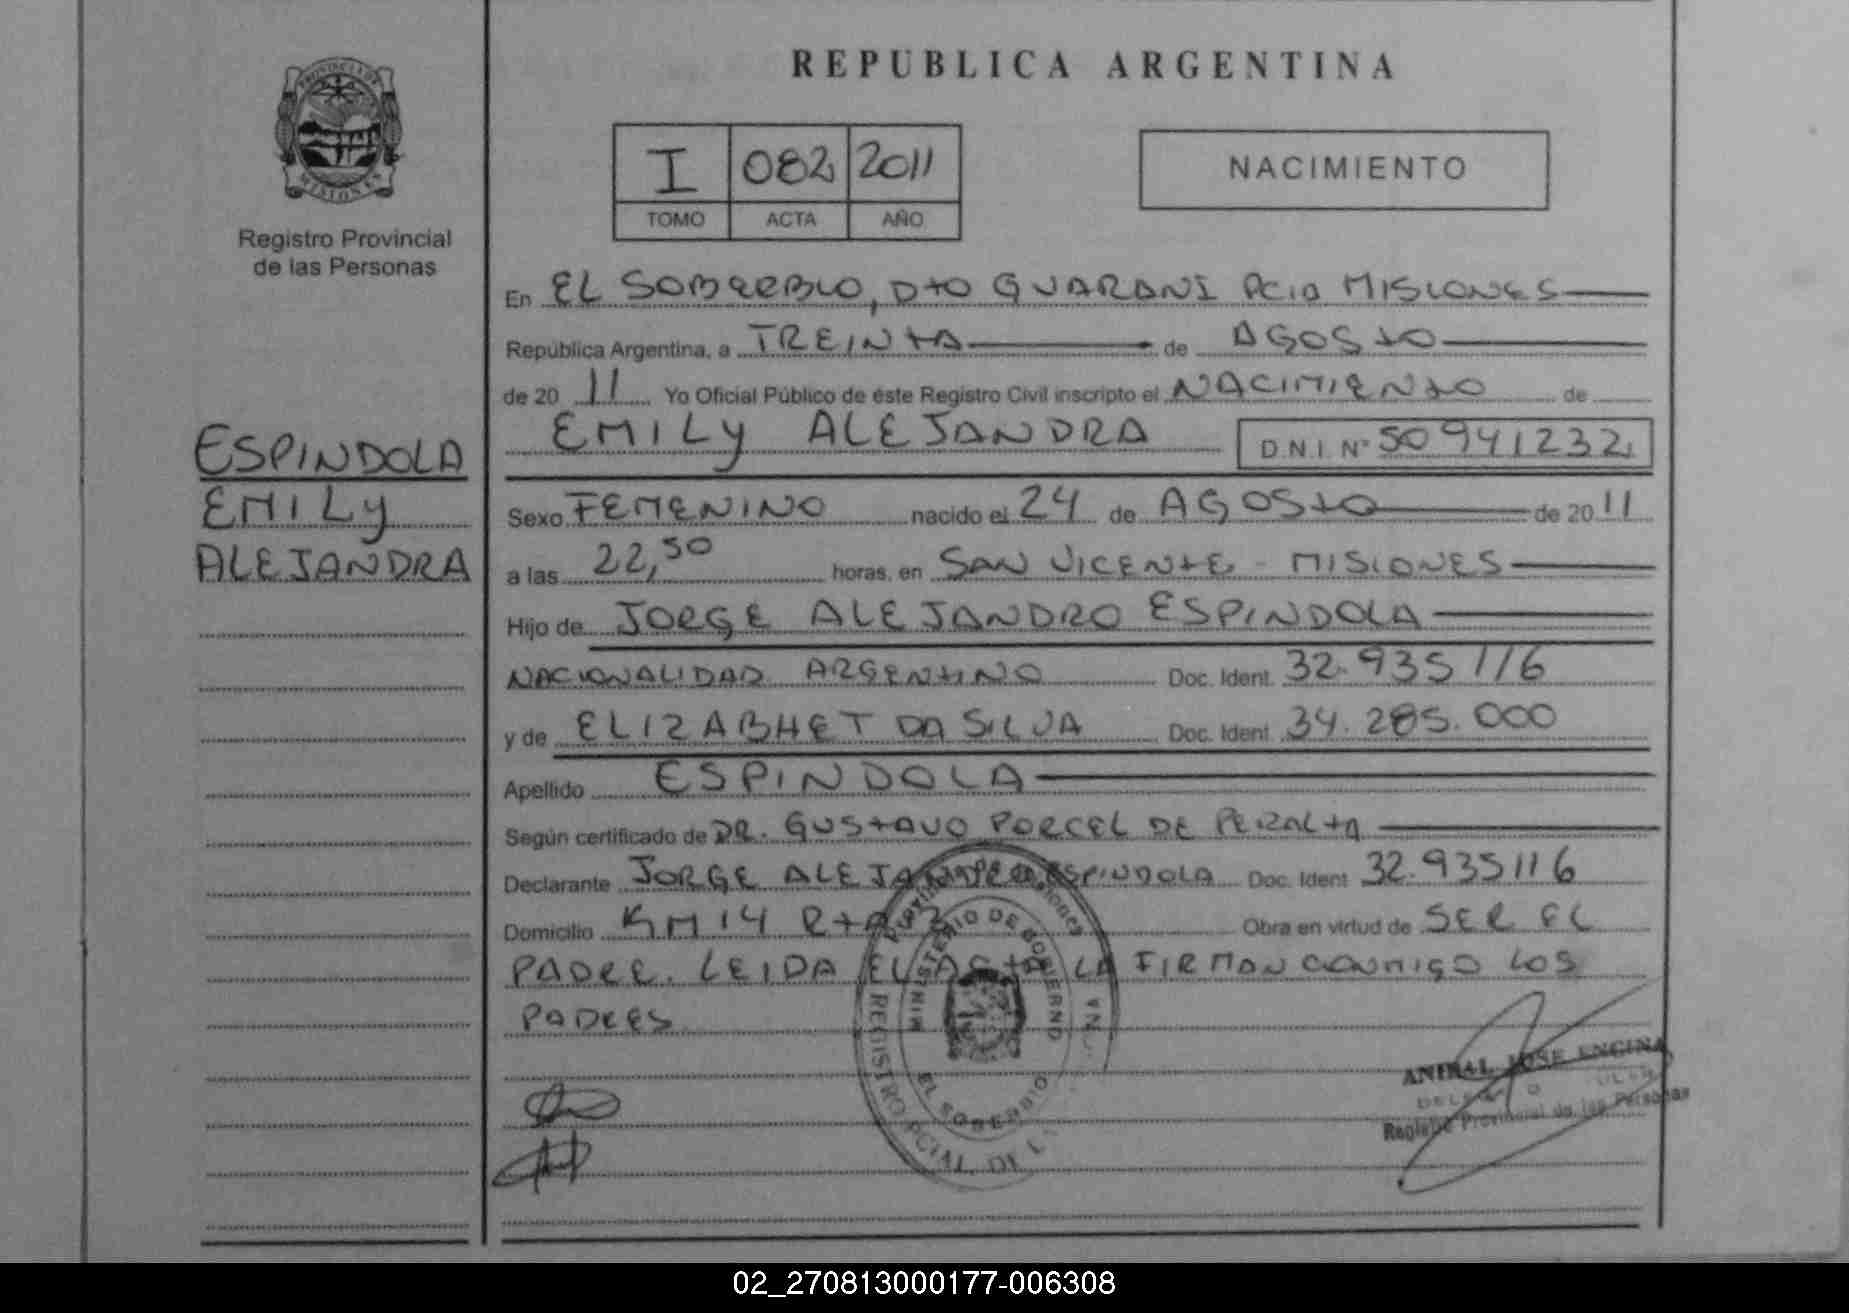 PROVINCIA DE
MISIONES
Registro Provincial
de las Personas
ESPINDOLA
EMILY
ALEJANDRA
REPUBLICA ARGENTINA
I 082 2011
TOMO ACTA AÑO
NACIMIENTO
En EL SOBERBIO, Dto GUARANI Pcia MISIONES
República Argentina, a TREINTA de AGOSTO
de 20 11 Yo Oficial Público de éste Registro Civil inscripto el NACIMIENTO de
EMILY ALEJANDRA D.N.I. Nº 50941232
Sexo FEMENINO nacido el 24 de AGOSTO de 20 11
a las 22,50 horas, en SAN VICENTE - MISIONES
Hijo de JORGE ALEJANDRO ESPINDOLA
NACIONALIDAD ARGENTINO Doc. Ident. 32.935116
y de ELIZABHET DA SILVA Doc. Ident. 34.285.000
Apellido ESPINDOLA
Según certificado de DR. GUSTAVO PORCEL DE PERALTA
Declarante JORGE ALEJANDRO ESPINDOLA Doc. Ident 32.935116
Domicilio KM 14 RTA 2 Obra en virtud de SER EL
PADRE. LEIDA EL ACTA LA FIRMAN CONMIGO LOS
PADRES
MINISTERIO DE GOBIERNO
EL SOBERBIO
REGISTRO PCIAL. DE
ANIBAL JOSE ENCINA
Registro Provincial de las Personas
02_270813000177-006308